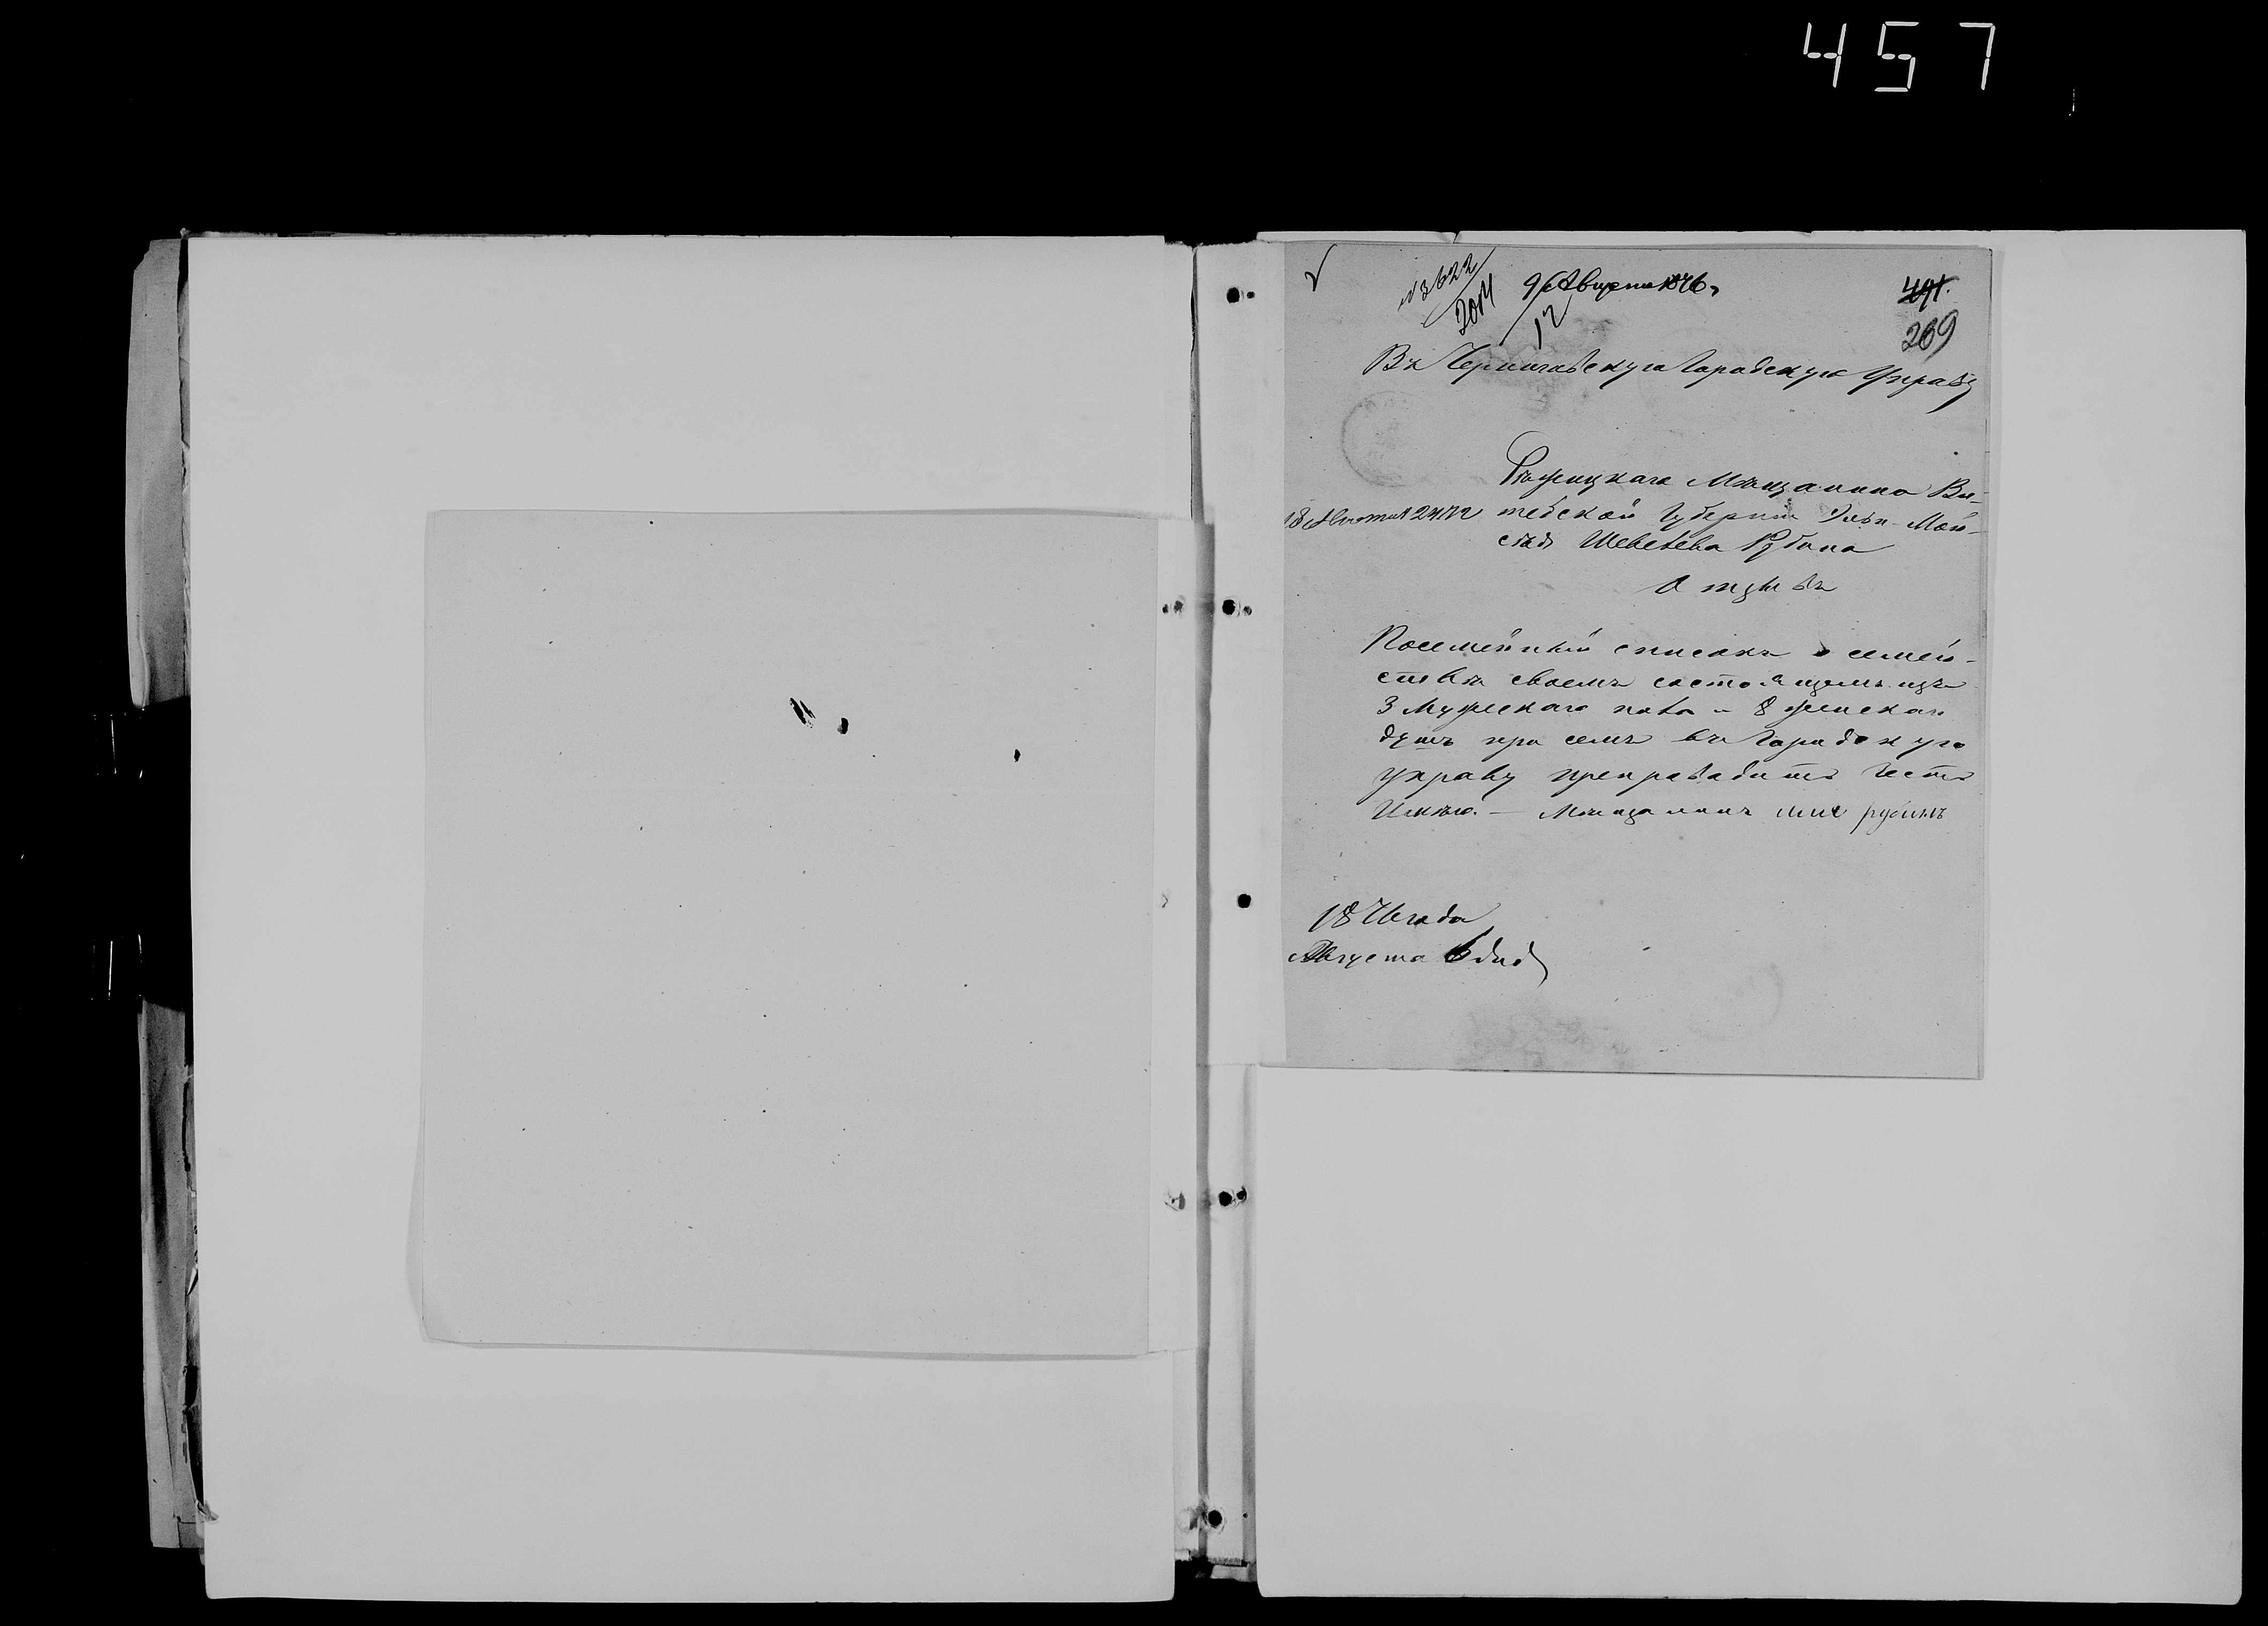 457
№ 3622
2014
9 Августа 1876 г.
12
491.
269
Въ Черниговскую Городскую Управу
Рѣжицкаго Мѣщанина Ви-
тебской Губерніи
Шевелева Рубина
Отзывъ
Посемейный списокъ о семей-
ствѣ своемъ состоящемъ изъ
3 Мужескаго пола и 8 женскаго
душъ при семъ въ Городскую
управу препроводить честь
Имѣю. — Мѣщанинъ рубинъ
1876 года
Августа 6 дня